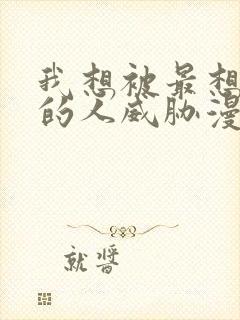 我想被最想
的人威胁漫
就醬